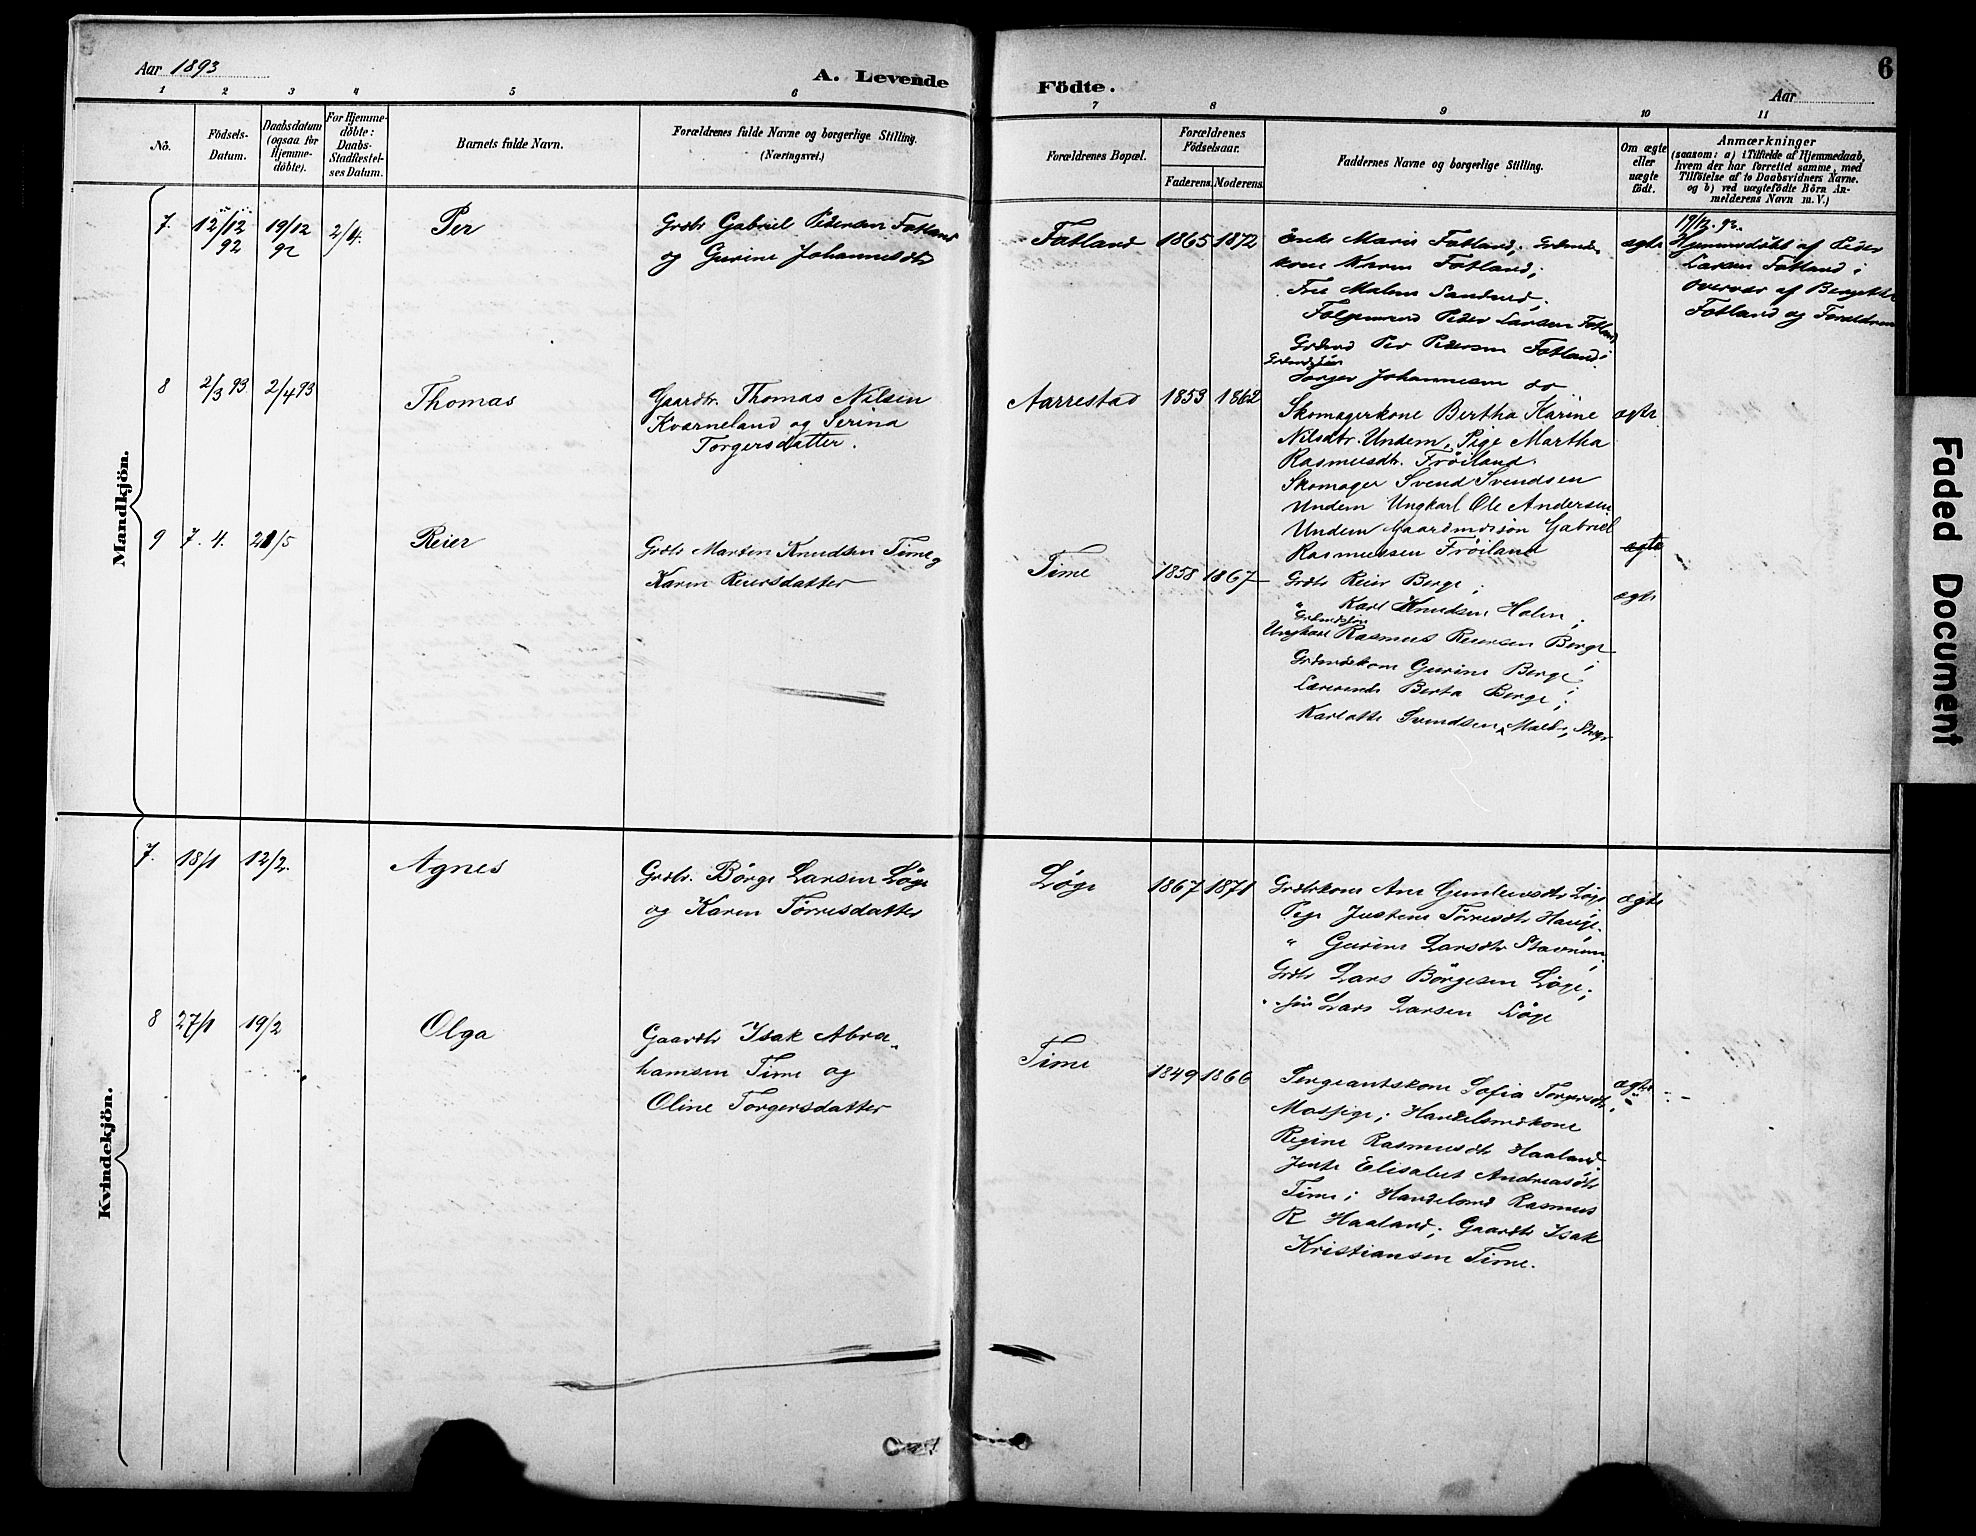 Aar 1893
A. Levende
Födte.
Aar
6
1 2 3 4 5 6 7 8 9 10 11
No.
Födsels-
Datum.
Daabsdatum
(ogsaa for
Hjemme-
döbte).
For Hjemme-
döbte:
Daabs-
Stadfæstel-
ses Datum.
Barnets fulde Navn.
Forældrenes fulde Navne og borgerlige Stilling.
(Næringsvei.)
Forældrenes Bopæl.
Forældrenes
Födselsaar.
Faderens. Moderens.
Faddernes Navne og borgerlige Stilling.
Om ægte
eller
uægte
födt.
Anmærkninger
(saasom: a) i Tilfælde af Hjemmedaab,
hvem der har forrettet samme, med
Tilföielse af to Daabsvidners Navne.
og b) ved uægtefödte Börn An-
melderens Navn m. V.)
Mandkjön.
7. 12/12 92 19/12 92 2/4. Per
Grdbr Gabriel Pedersen Fotland
og Gurine Johannesdtr
Fotland 1865 1872
Enke Marie Fotland; Grdmds
kone Karen Fotland;
Malene Sandved;
Peder Larsen Fotland
Grdmd Per Pedersen Fotland;
Grdmdsøn
Torger Johannesen do
ægte
19/12. 92.
Hjemmedøbt af Peder
Larsen Fotland i
Overvær af
Fotland og Forældrene
8 2/3 93 2/4 93 Thomas
Gaardbr. Thomas Nilsen
Kværneland og Serina
Torgersdatter.
Aarrestad 1853 1862
Skomagerkone Bertha Karine
Nilsdtr. Undem, Pige Martha
Rasmusdtr. Frøiland.
Skomager Svend Svendsen
Undem Ungkarl Ole Andersen
Undem Gaardmdsøn Gabriel
Rasmussen Frøiland
ægte
ægte
9 7. 4. 21/5 Reier
Grdbr Morten Knudsen Time og
Karen Reiersdatter
Time 1858 1867
Grdbr Reier Berge;
" Karl Knudsen Holen;
Grdmdsøn
Ungkarl Rasmus Reiersen Berge
Grdmdskone Gurine Berge;
Lærerinde Berta Berge;
Karlotte Svendsen,
ægte
Kvindekjön.
7. 18/1 12/2. Agnes
Grdbr. Börge Larsen Löge
og Karen Törresdatter
Löge 1867 1871
Grdbrkone Ane Gunleivsdtr Löge
Pige Justine Törresdtr Hauge.
" Gurine Larsdtr Stavnem;
Grdbr Lars Börgesen Löge;
" søn Lars Larsen Löge
ægte
8 27/1 19/2 Olga
Gaardbr Isak Abra-
hamsen Time og
Oline Torgersdatter
Time 1849 1866
Sergeantskone Sofia Torgersdtr
Mossige; Handelsmdkone
Regine Rasmusdtr Haaland
Jente Elisabet Andreasdtr
Time; Handelsmd Rasmus
R Haaland; Gaardbr Isak
Kristiansen Time.
ægte
Faded Document